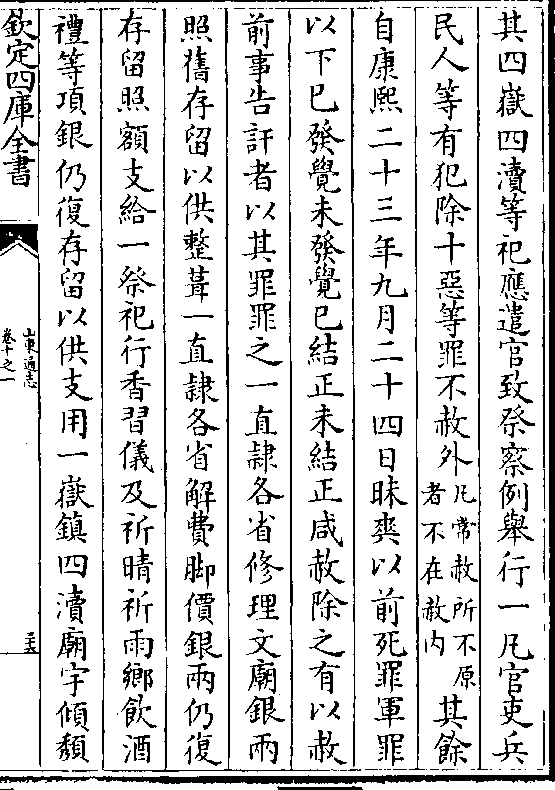 其四嶽四瀆等祀應遣官致祭察例舉行一凡官吏兵
民人等有犯除十惡等罪不赦外凡常赦所不原者不在赦内其餘
自康熙二十三年九月二十四日昧爽以前死罪軍罪
以下已發覺未發覺已結正未結正咸赦除之有以赦
前事告訐者以其罪罪之一直隸各省修理文廟銀兩
照舊存留以供整葺一直隸各省解費脚價銀兩仍復
存留照額支給一祭祀行香習儀及祈晴祈雨鄉飲酒
禮等項銀仍復存留以供支用一嶽鎮四瀆廟宇傾頽
欽定四庫全書
山東通志
卷十之一
二十五